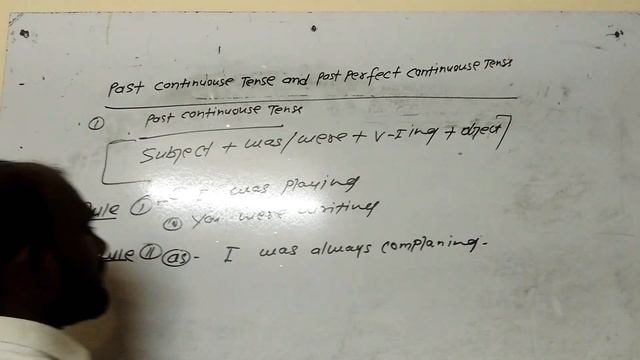 Past continuouse Tense and Past Perfect continuouse Tenss
① Past continuouse Tenss
Subject + was/were + V-I ing + object
Rule ① I was playing
You were writing
Rule ⑪ as - I was always complaning.